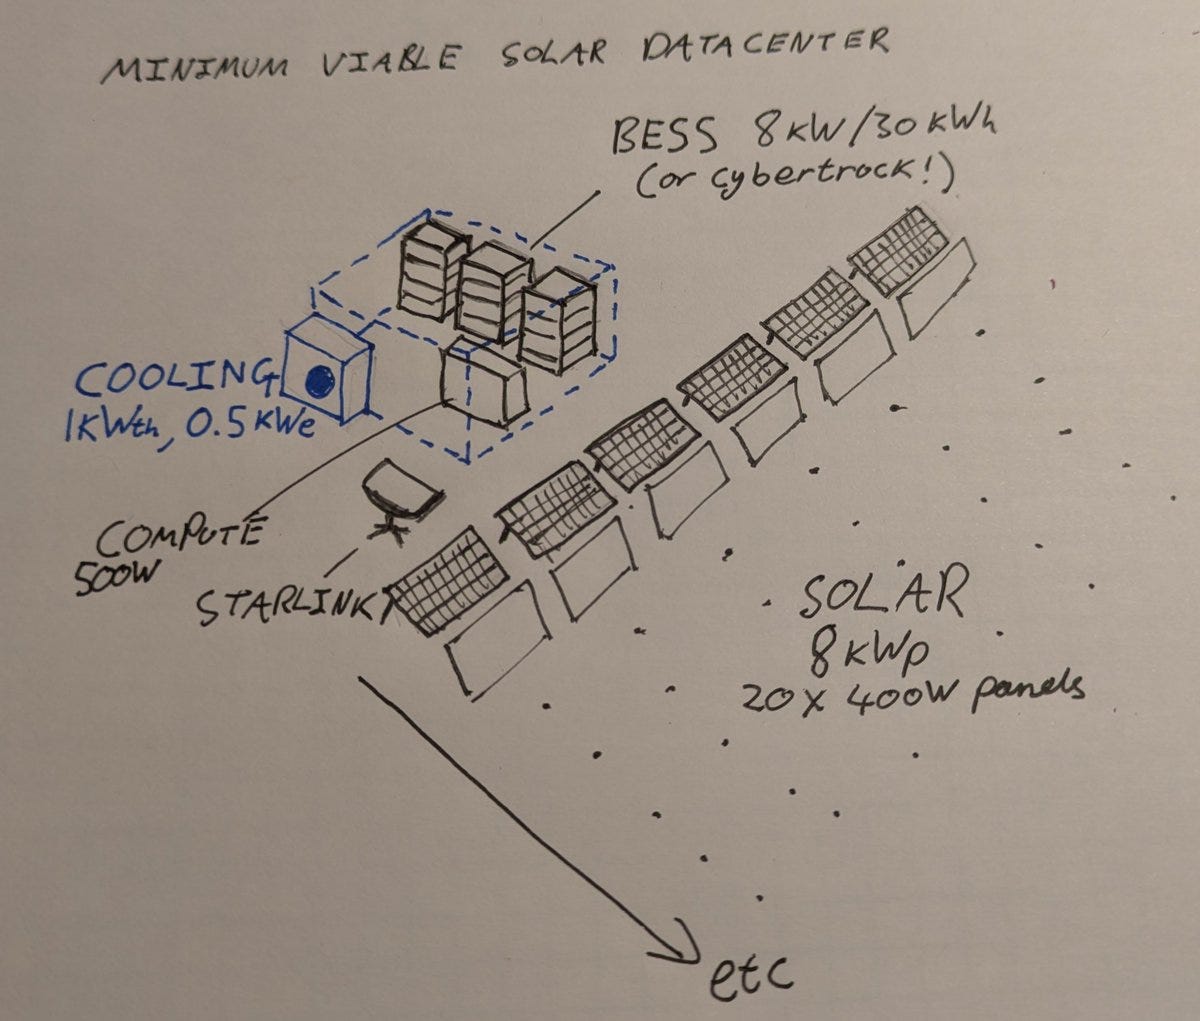 MINIMUM VIABLE SOLAR DATACENTER
BESS 8kW/30kWh
(or cybertrock!)
COOLING
1kWth, 0.5kWe
COMPUTE
500W
STARLINK
SOLAR
8kWp
20x 400W panels
etc